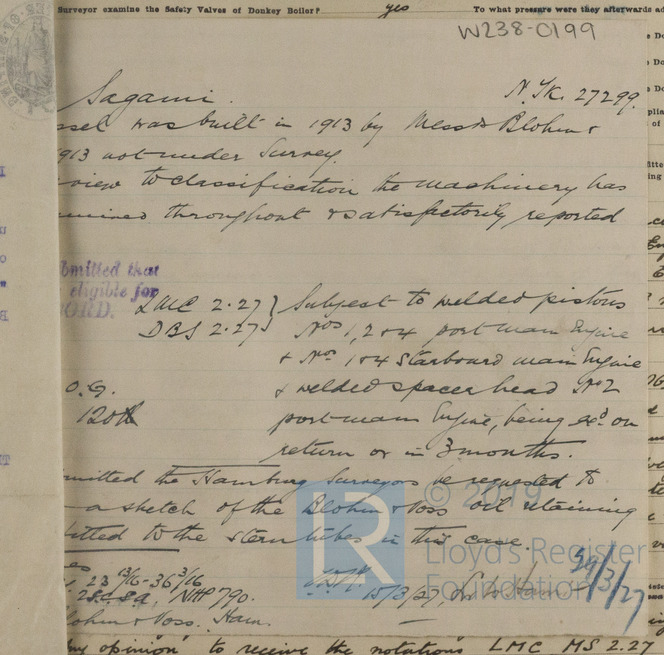 Surveyor examine the Safety Valves of Donkey Boiler? yes To what pressure were they afterwards ad
W238-0199
Sagami. N. Yk. 27299
ssel was built in 1913 by Messrs Blohm &
913 not under Survey.
view to classification the machinery has
mined throughout & satisfactorily reported
bmitted that
eligible for
ORD.
LMC 2.27 } Subject to welded pistons
DBS 2.27 } Nos 1, 2 & 4 port main Engine
& Nos 1 & 4 Starboard main Engine
O.G. & welded spacer head No 2
120lb port main Engine, being exd on
return or in 3 months.
mitted the Hamburg Surveyors be requested to
a sketch of the Blohm & Voss oil retaining
fitted to the stern tubes in this case.
© 2019
LR
Lloyd's Register
Foundation
23 13/16 - 36 3/16
2S.C.SA, NHP 790. 15/3/27
29/3/27
Blohm & Voss. Ham.
my opinion to receive the notations LMC MS 2.27